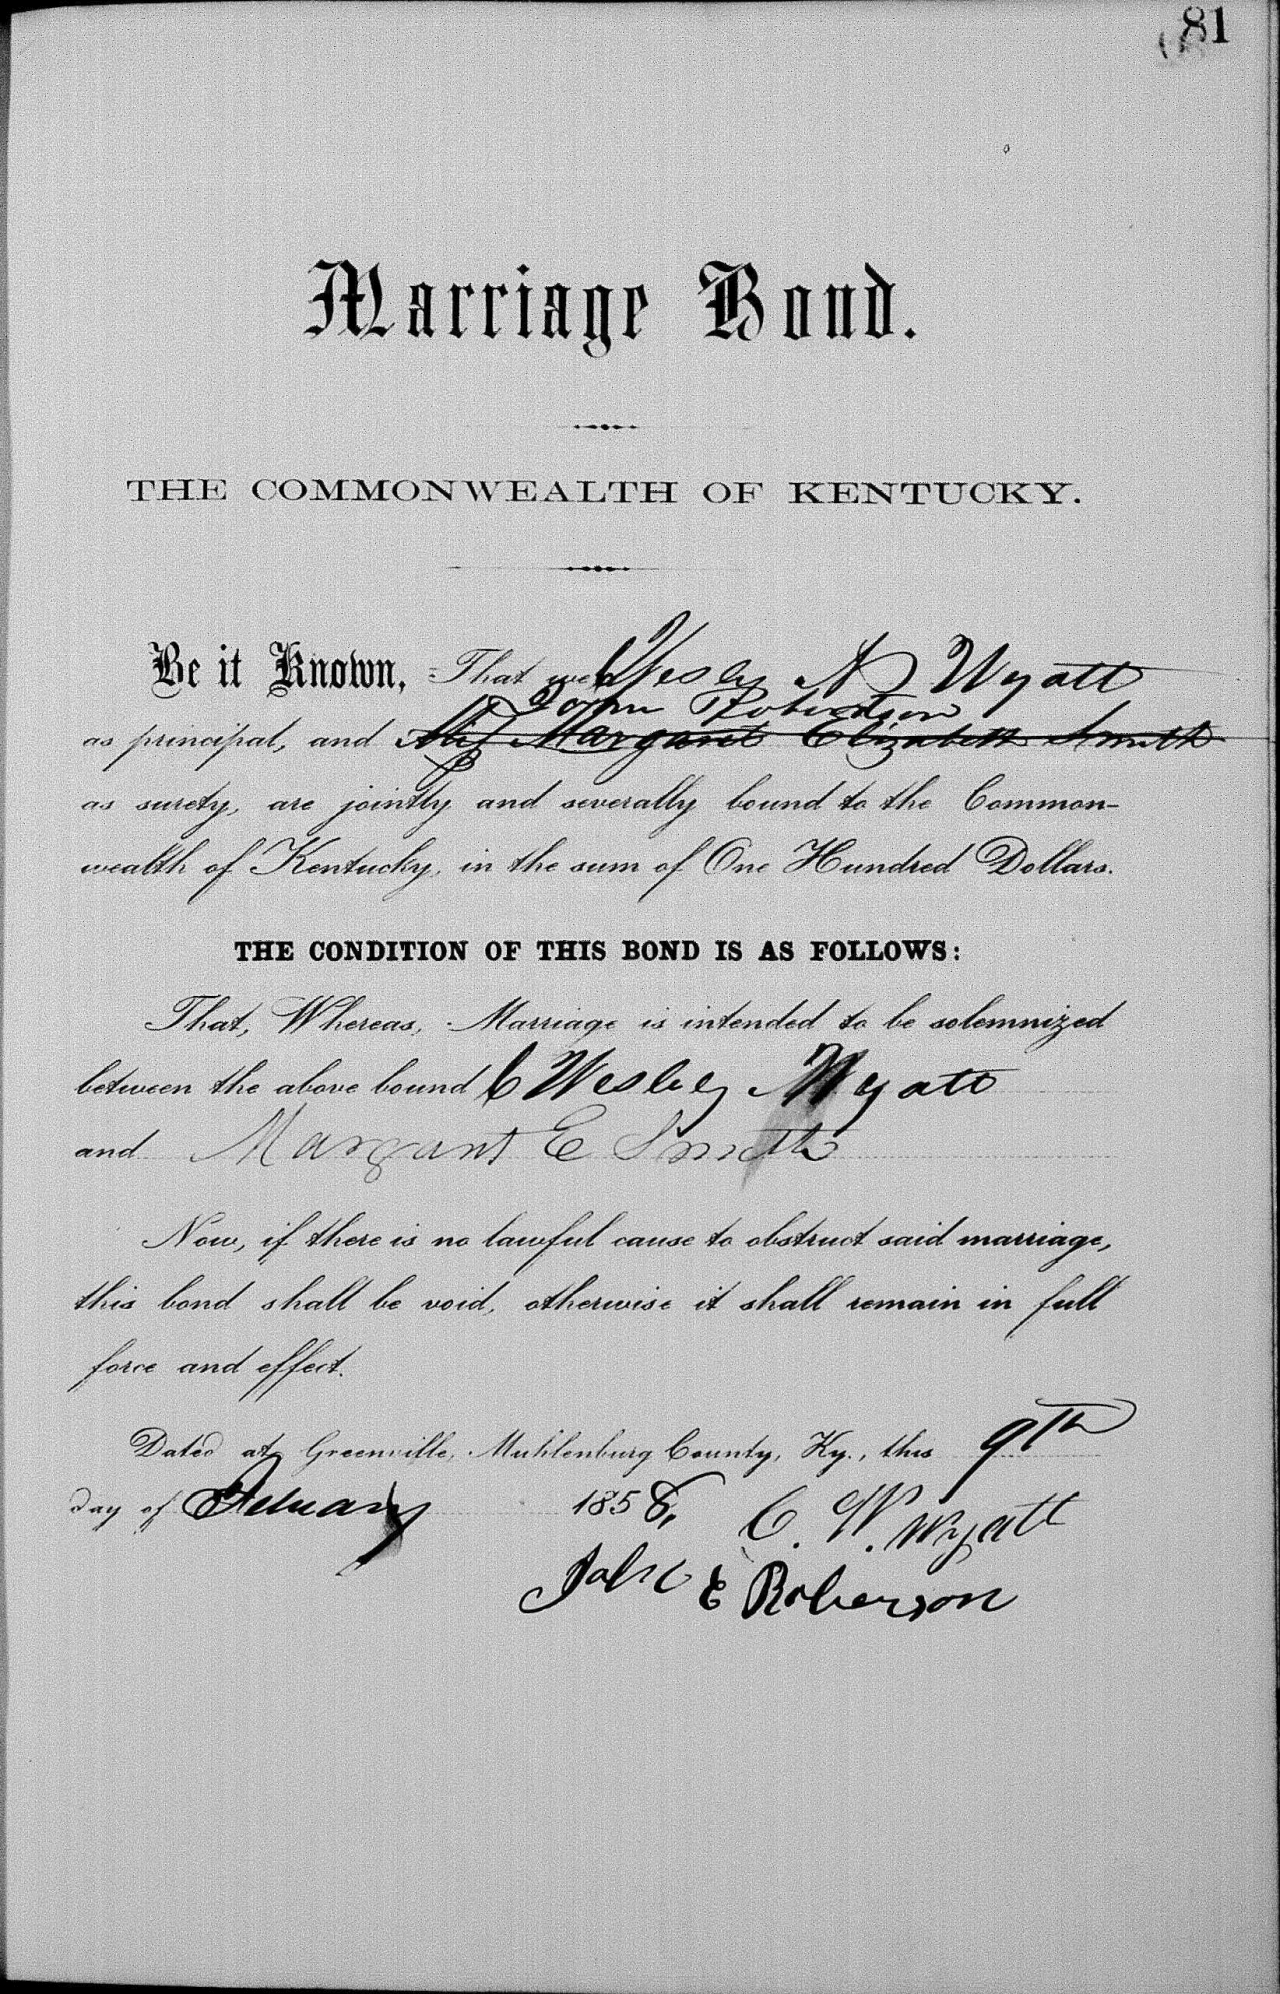 81
Marriage Bond.
THE COMMONWEALTH OF KENTUCKY.
Be it Known, That we C Wesley N Wyatt
John Robertson
as principal, and Margaret Elizabeth Smith
as surety, are jointly and severally bound to the Common-
wealth of Kentucky, in the sum of One Hundred Dollars.
THE CONDITION OF THIS BOND IS AS FOLLOWS:
That, Whereas, Marriage is intended to be solemnized
between the above bound C Wesley Wyatt
and Margaret E Smith
Now, if there is no lawful cause to obstruct said marriage,
this bond shall be void, otherwise it shall remain in full
force and effect.
Dated at Greenville, Muhlenburg County, Ky., this 9th
day of February 1858, C. W. Wyatt
John E Roberson